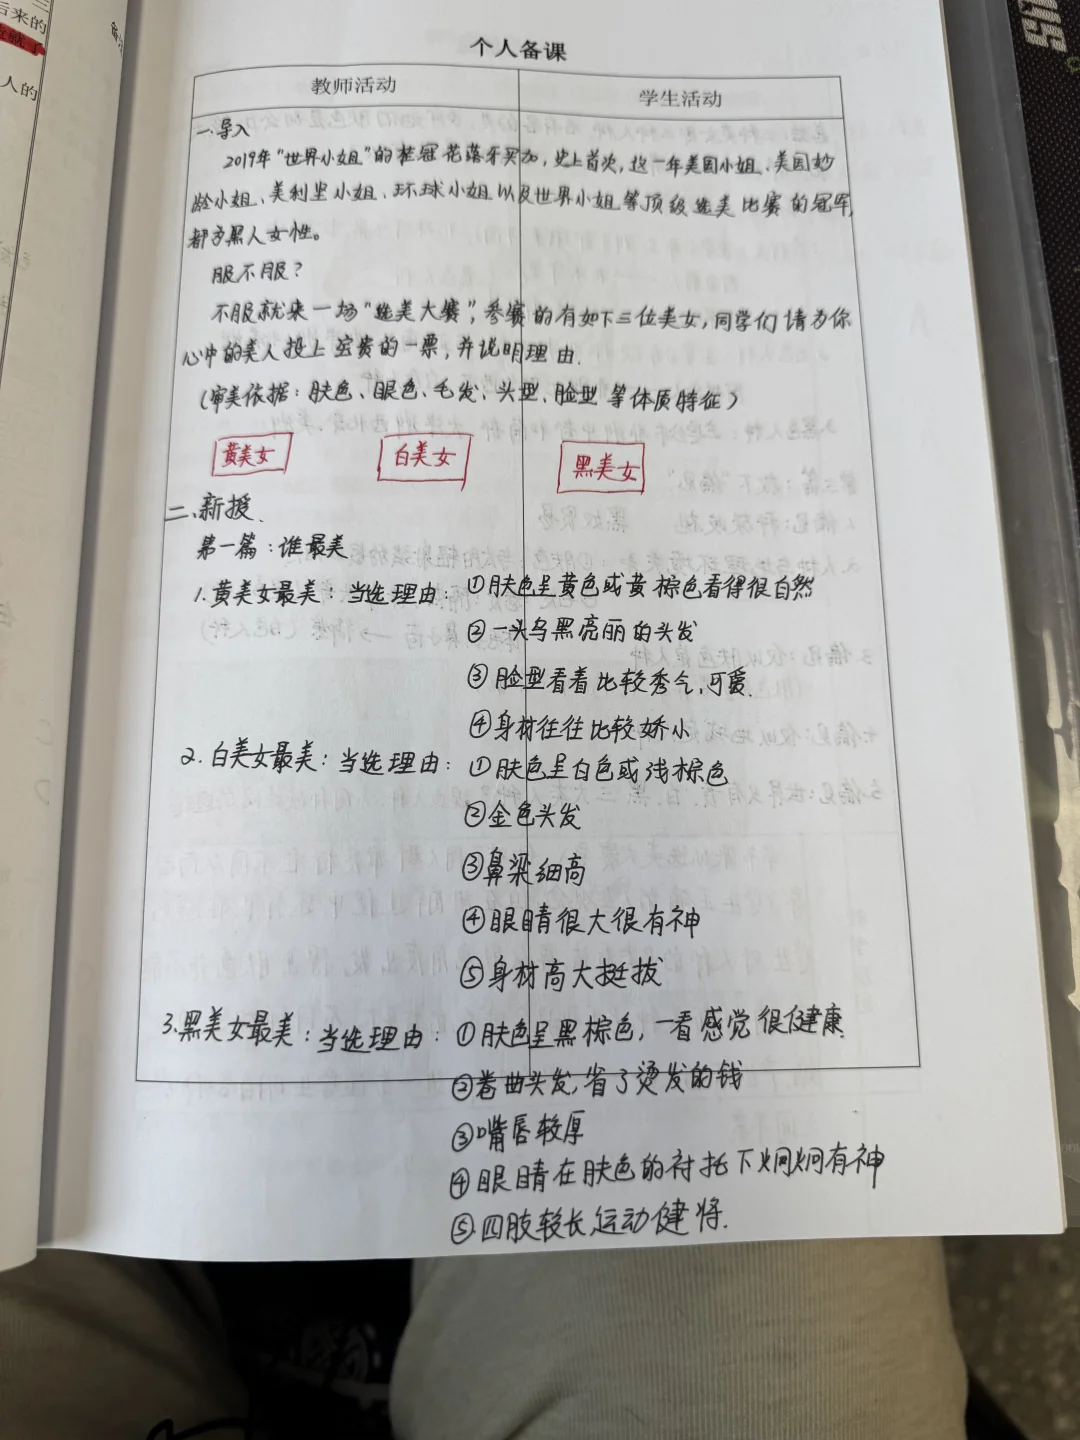 个人备课
教师活动
学生活动
一.导入
2019年"世界小姐"的桂冠花落牙买加,史上首次,这一年美国小姐、美国妙
龄小姐、美利坚小姐、环球小姐以及世界小姐等顶级选美比赛的冠军
都为黑人女性。
服不服?
不服就来一场"选美大赛",参赛的有如下三位美女,同学们请为你
心中的美人投上宝贵的一票,并说明理由.
(审美依据:肤色、眼色、毛发、头型、脸型等体质特征)
黄美女
白美女
黑美女
二、新授.
第一篇:谁最美
1.黄美女最美:当选理由:①肤色呈黄色或黄棕色看得很自然
②一头乌黑亮丽的头发
③脸型看着比较秀气,可爱.
④身材往往比较娇小
2.白美女最美:当选理由:①肤色呈白色或浅棕色
②金色头发
③鼻梁细高
④眼睛很大很有神
⑤身材高大挺拔
3.黑美女最美:当选理由:①肤色呈黑棕色,一看感觉很健康
②卷曲头发,省了烫发的钱
③嘴唇较厚
④眼睛在肤色的衬托下炯炯有神
⑤四肢较长,运动健将.
后来的
人的